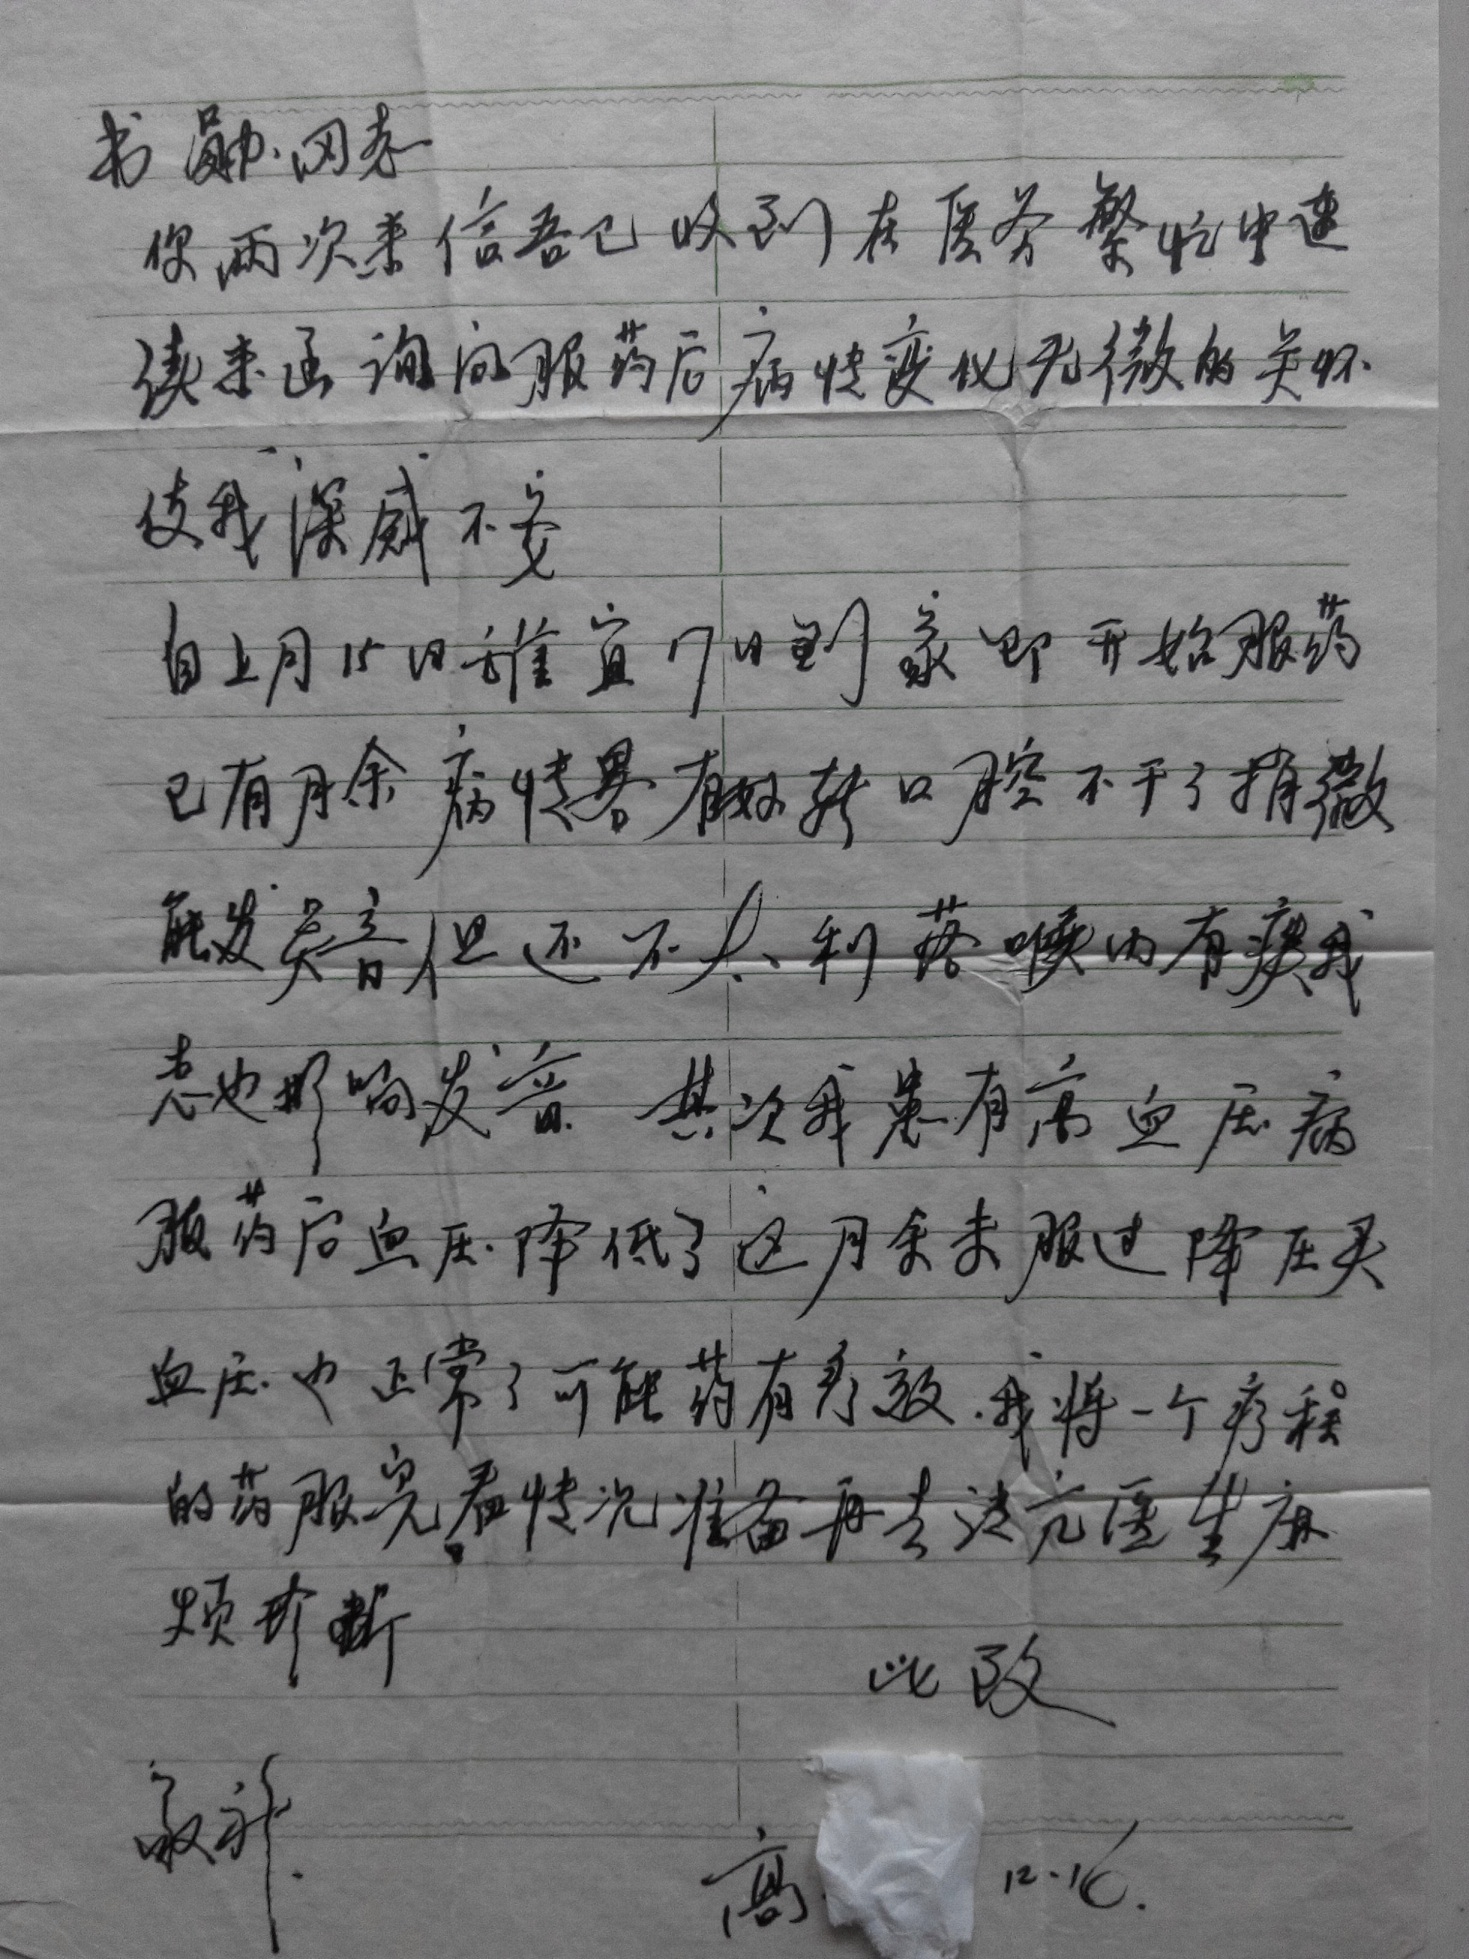 书勋同志
你两次来信吾已收到在医务繁忙中连
续来函询问服药后病情变化无微的关怀
使我深感不安
自上月15日离宜17日到家即开始服药
已有月余病情略有好转口腔不干了稍微
能发点音但还不太利落喉内有痰我
想也影响发音 其次我患有高血压病
服药后血压降低了这月余未服过降压灵
血压也正常了可能药有疗效.我将一个疗程
的药服完看情况准备再去法元医生麻
烦珍断
此致
敬礼.
高 12.16.